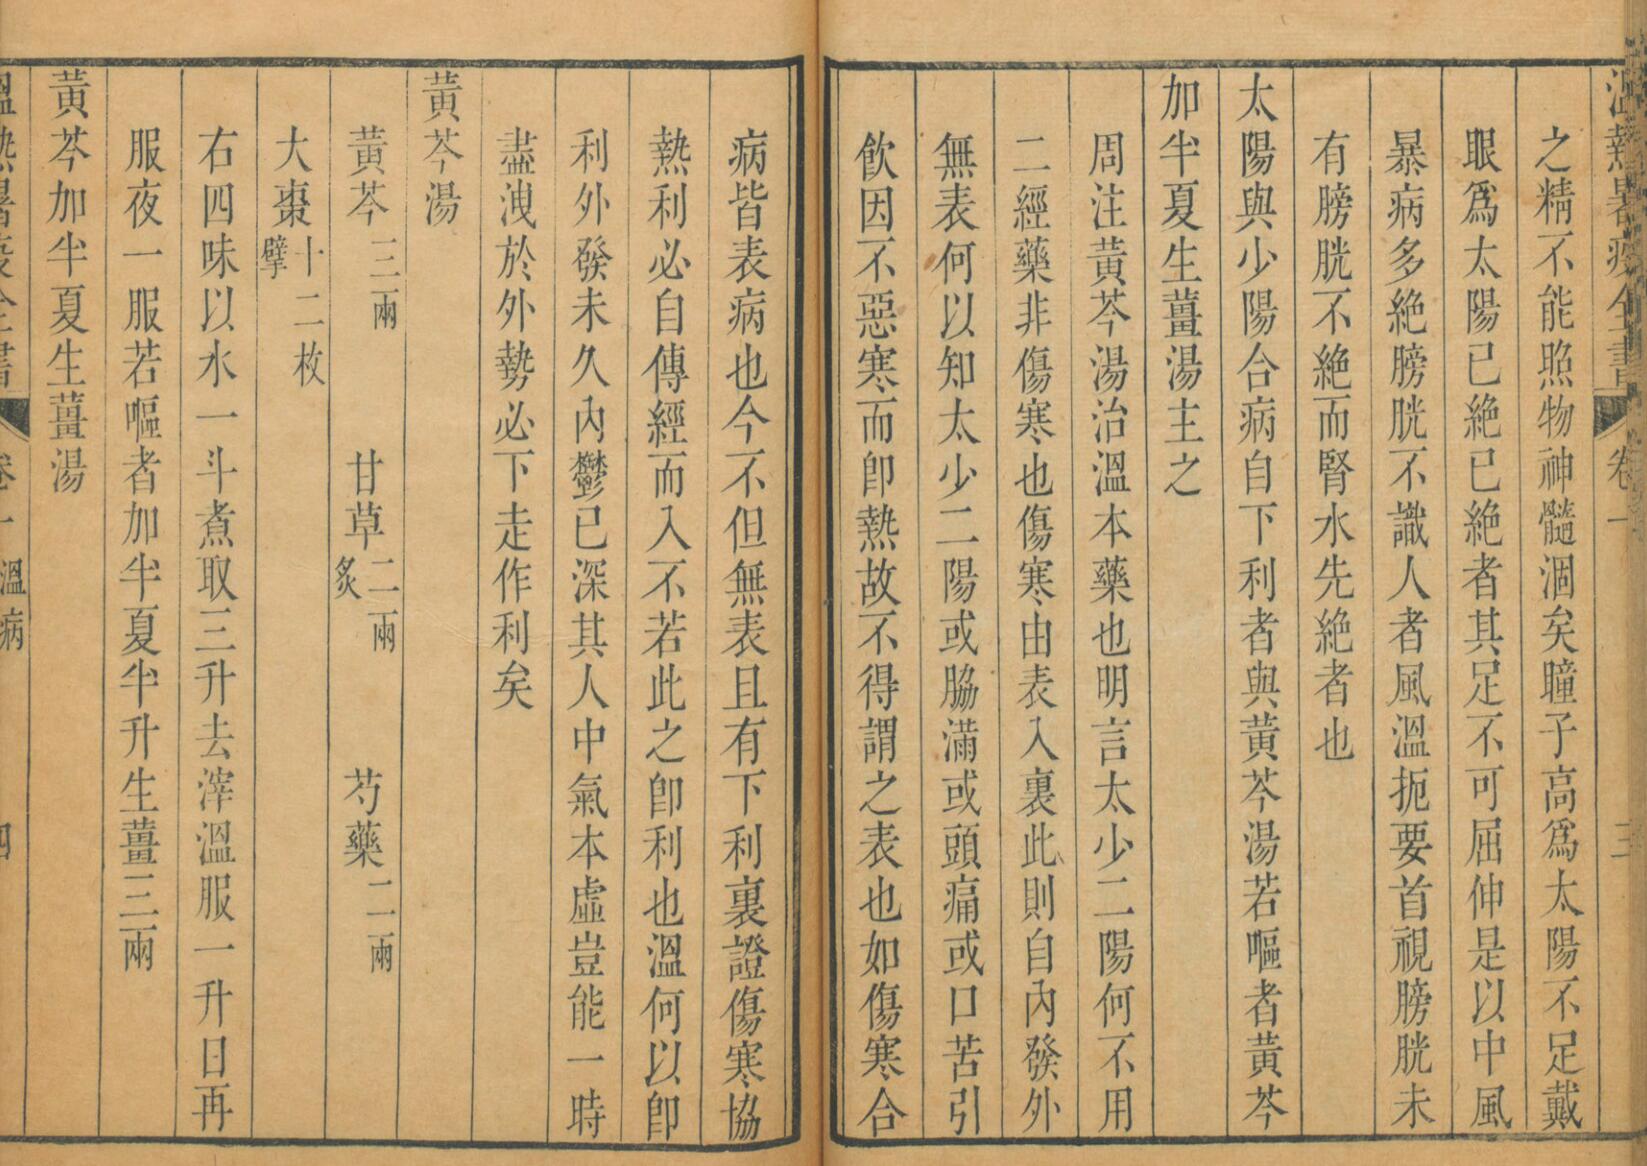 溫熱暑疫全書 卷一 三
之精不能照物神髓涸矣瞳子高爲太陽不足戴
眼爲太陽已絶已絶者其足不可屈伸是以中風
暴病多絶膀胱不識人者風溫扼要首視膀胱未
有膀胱不絶而腎水先絶者也
太陽與少陽合病自下利者與黃芩湯若嘔者黃芩
加半夏生薑湯主之
周注黃芩湯治溫本藥也明言太少二陽何不用
二經藥非傷寒也傷寒由表入裏此則自內發外
無表何以知太少二陽或脇滿或頭痛或口苦引
飲因不惡寒而卽熱故不得謂之表也如傷寒合
病皆表病也今不但無表且有下利裏證傷寒協
熱利必自傳經而入不若此之卽利也溫何以卽
利外發未久內鬱已深其人中氣本虛豈能一時
盡洩於外勢必下走作利矣
黃芩湯
黃芩三兩 甘草二兩炙 芍藥二兩
大棗十二枚擘
右四味以水一斗煮取三升去滓溫服一升日再
服夜一服若嘔者加半夏半升生薑三兩
黃芩加半夏生薑湯
溫熱暑疫全書 卷一 溫病 四